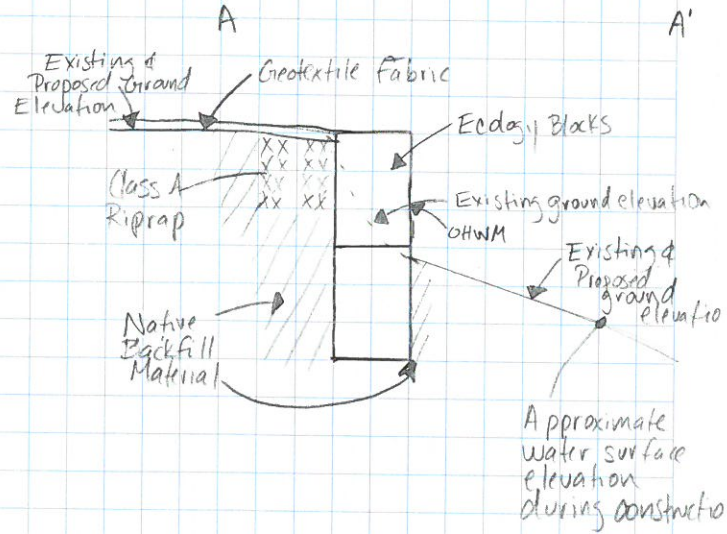 A
A'
Existing &
Proposed Ground
Elevation
Geotextile Fabric
Ecology Blocks
Class A
Riprap
Existing ground elevation
OHWM
Existing &
Proposed
ground
elevatio
Native
Backfill
Material
Approximate
water surface
elevation
during constructio